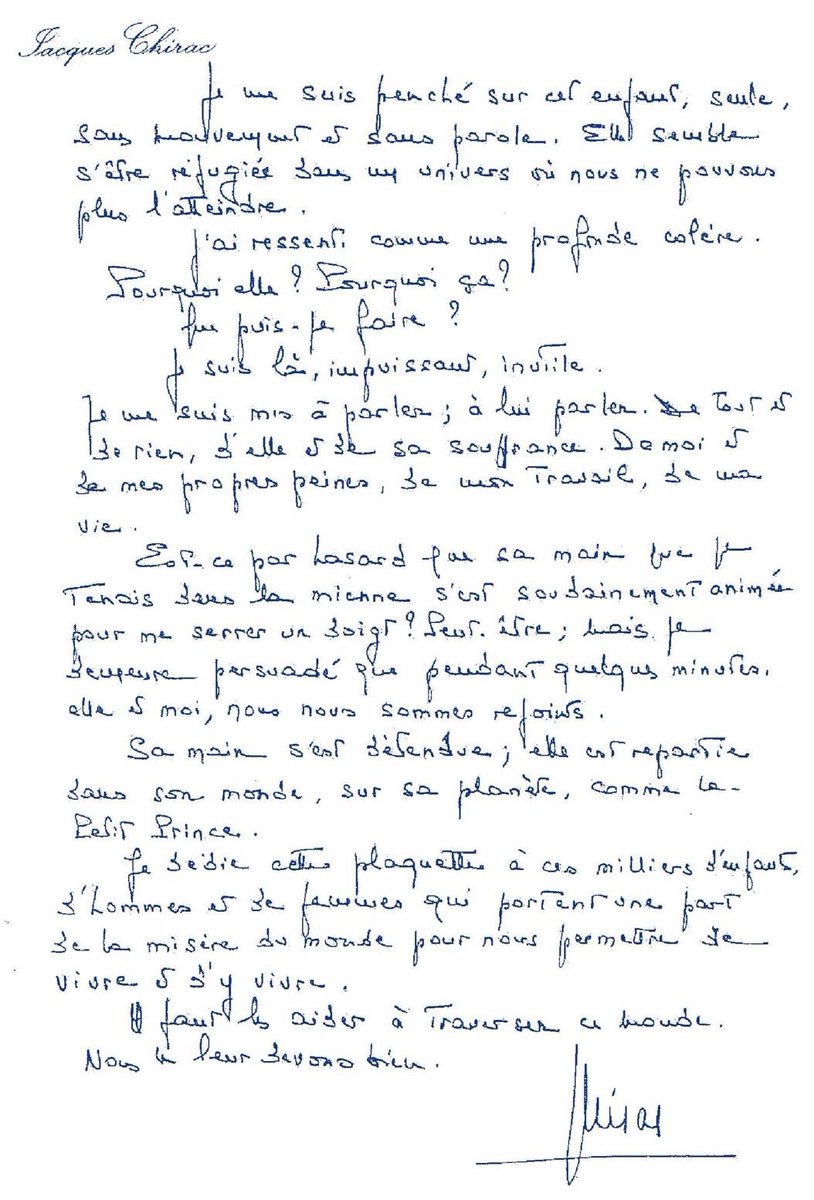 Jacques Chirac
Je me suis penché sur cet enfant, seule,
sans mouvement et sans parole. Elle semble
s'être réfugiée dans un univers où nous ne pouvons
plus l'atteindre.
J'ai ressenti comme une profonde colère.
Pourquoi elle ? Pourquoi ça ?
Que puis-je faire ?
Je suis là, impuissant, inutile.
Je me suis mis à parler ; à lui parler. De tout et
de rien, d'elle et de sa souffrance. De moi et
de mes propres peines, de mon travail, de ma
vie.
Est-ce par hasard que sa main que je
tenais dans la mienne s'est soudainement animée
pour me serrer un doigt ? Peut-être ; mais je
demeure persuadé que pendant quelques minutes,
elle et moi, nous nous sommes rejoints.
Sa main s'est détendue ; elle est repartie
dans son monde, sur sa planète, comme le
Petit Prince.
Je dédie cette plaquette à ces milliers d'enfants,
d'hommes et de femmes qui portent une part
de la misère du monde pour nous permettre de
vivre et d'y vivre.
Il faut les aider à traverser ce monde.
Nous le leur devons bien.
Chirac